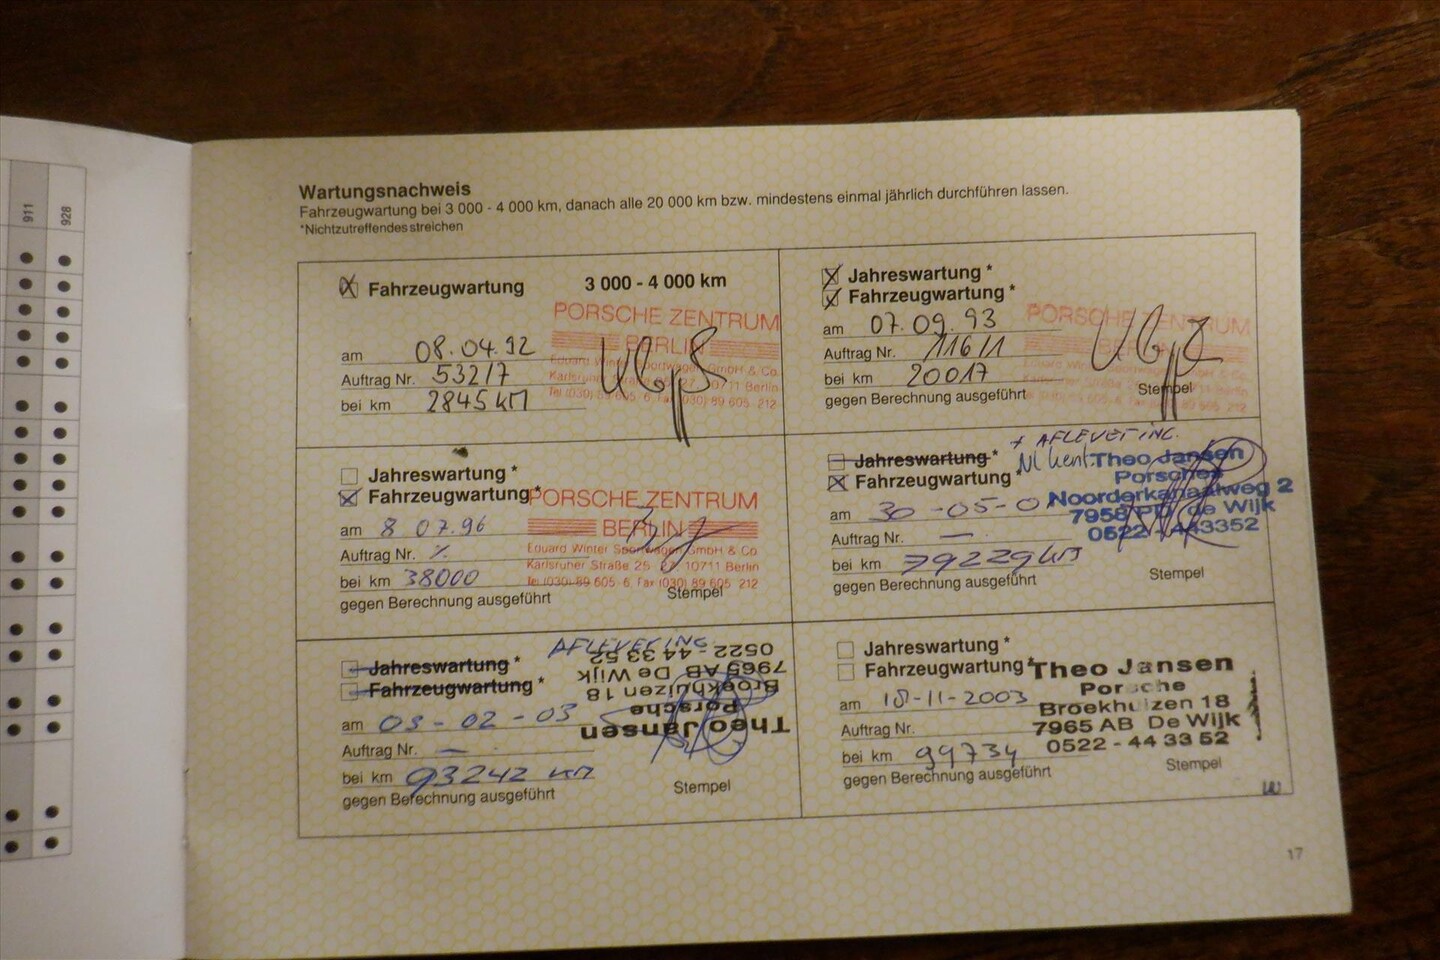 911
928
Wartungsnachweis
Fahrzeugwartung bei 3 000 - 4 000 km, danach alle 20 000 km bzw. mindestens einmal jährlich durchführen lassen.
*Nichtzutreffendes streichen
Fahrzeugwartung 3 000 - 4 000 km
PORSCHE ZENTRUM
BERLIN
Eduard Winter Sportwagen GmbH & Co.
Karlsruher Straße 10711 Berlin
Tel (030) 89 605-6, Fax (030) 89 605-212
am 08.04.92
Auftrag Nr. 53217
bei km 2845 KM
Jahreswartung *
Fahrzeugwartung *
PORSCHE ZENTRUM
am 07.09.93
Auftrag Nr. 11611
bei km 20017
gegen Berechnung ausgeführt
Stempel
Jahreswartung *
Fahrzeugwartung *
PORSCHE ZENTRUM
BERLIN
Eduard Winter Sportwagen GmbH & Co.
Karlsruher Straße 25 10711 Berlin
Tel (030) 89 605-6, Fax (030) 89 605-212
am 8 07.96
Auftrag Nr. %
bei km 38000
gegen Berechnung ausgeführt
Stempel
+ AFLEVERING.
Jahreswartung *
Fahrzeugwartung *
NL kent.
Theo Jansen
Porsche
Noorderkanaalweg 2
7958 de Wijk
0522 - 443352
am 30-05-0
Auftrag Nr. —
bei km 79229 km
gegen Berechnung ausgeführt
Stempel
AFLEVERING.
Jahreswartung *
Fahrzeugwartung *
Theo Jansen
Porsche
Broekhuizen 18
7965 AB De Wijk
0522 - 44 33 52
am 03-02-03
Auftrag Nr. —
bei km 93242 km
gegen Berechnung ausgeführt
Stempel
Jahreswartung *
Fahrzeugwartung *
Theo Jansen
Porsche
Broekhuizen 18
7965 AB De Wijk
0522 - 44 33 52
am 18-11-2003
Auftrag Nr.
bei km 99734
gegen Berechnung ausgeführt
Stempel
17